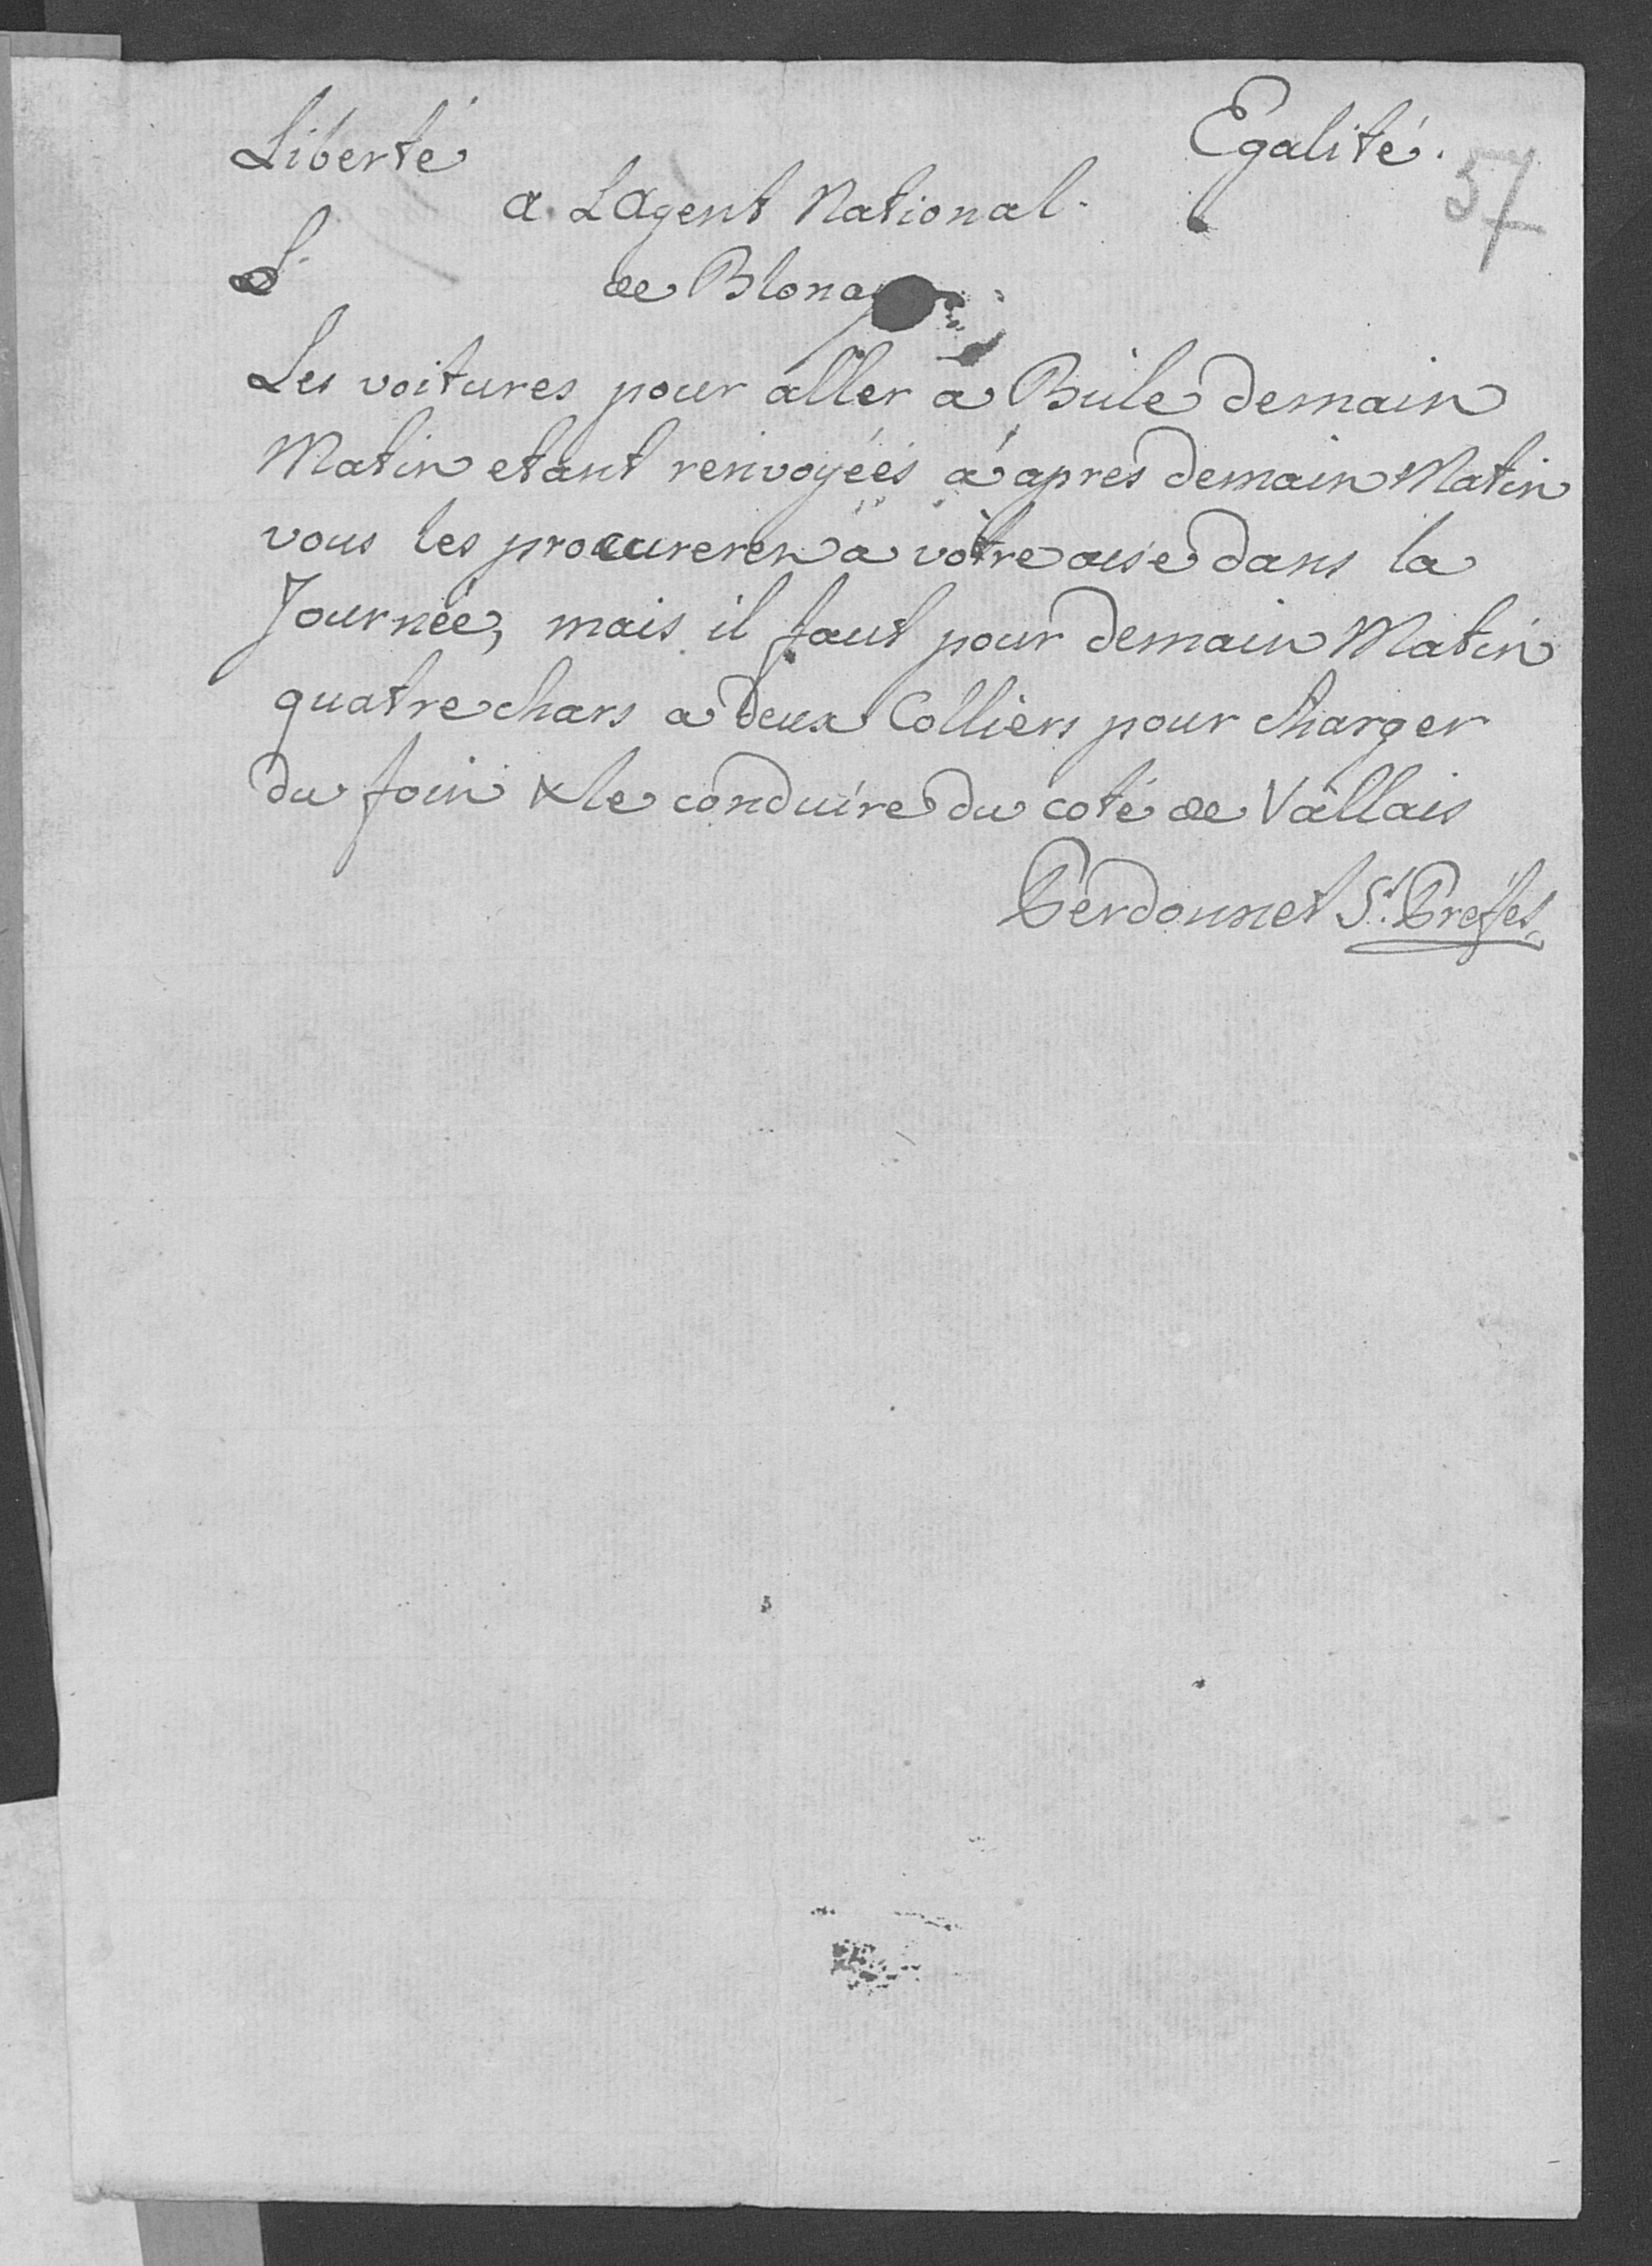 Liberté Egalité.
57
a LAgent National.
de Blonay
Les voitures pour aller a Bule demain
Matin etant renvoyéés á apres demain Matin
vous les procurerer a vôtre aise dans la
Journée, mais il faut pour demain Matin
quatre chars a deux Colliers pour charger
du foin & le conduire du coté de Vallais
Perdonnet St. Prefet